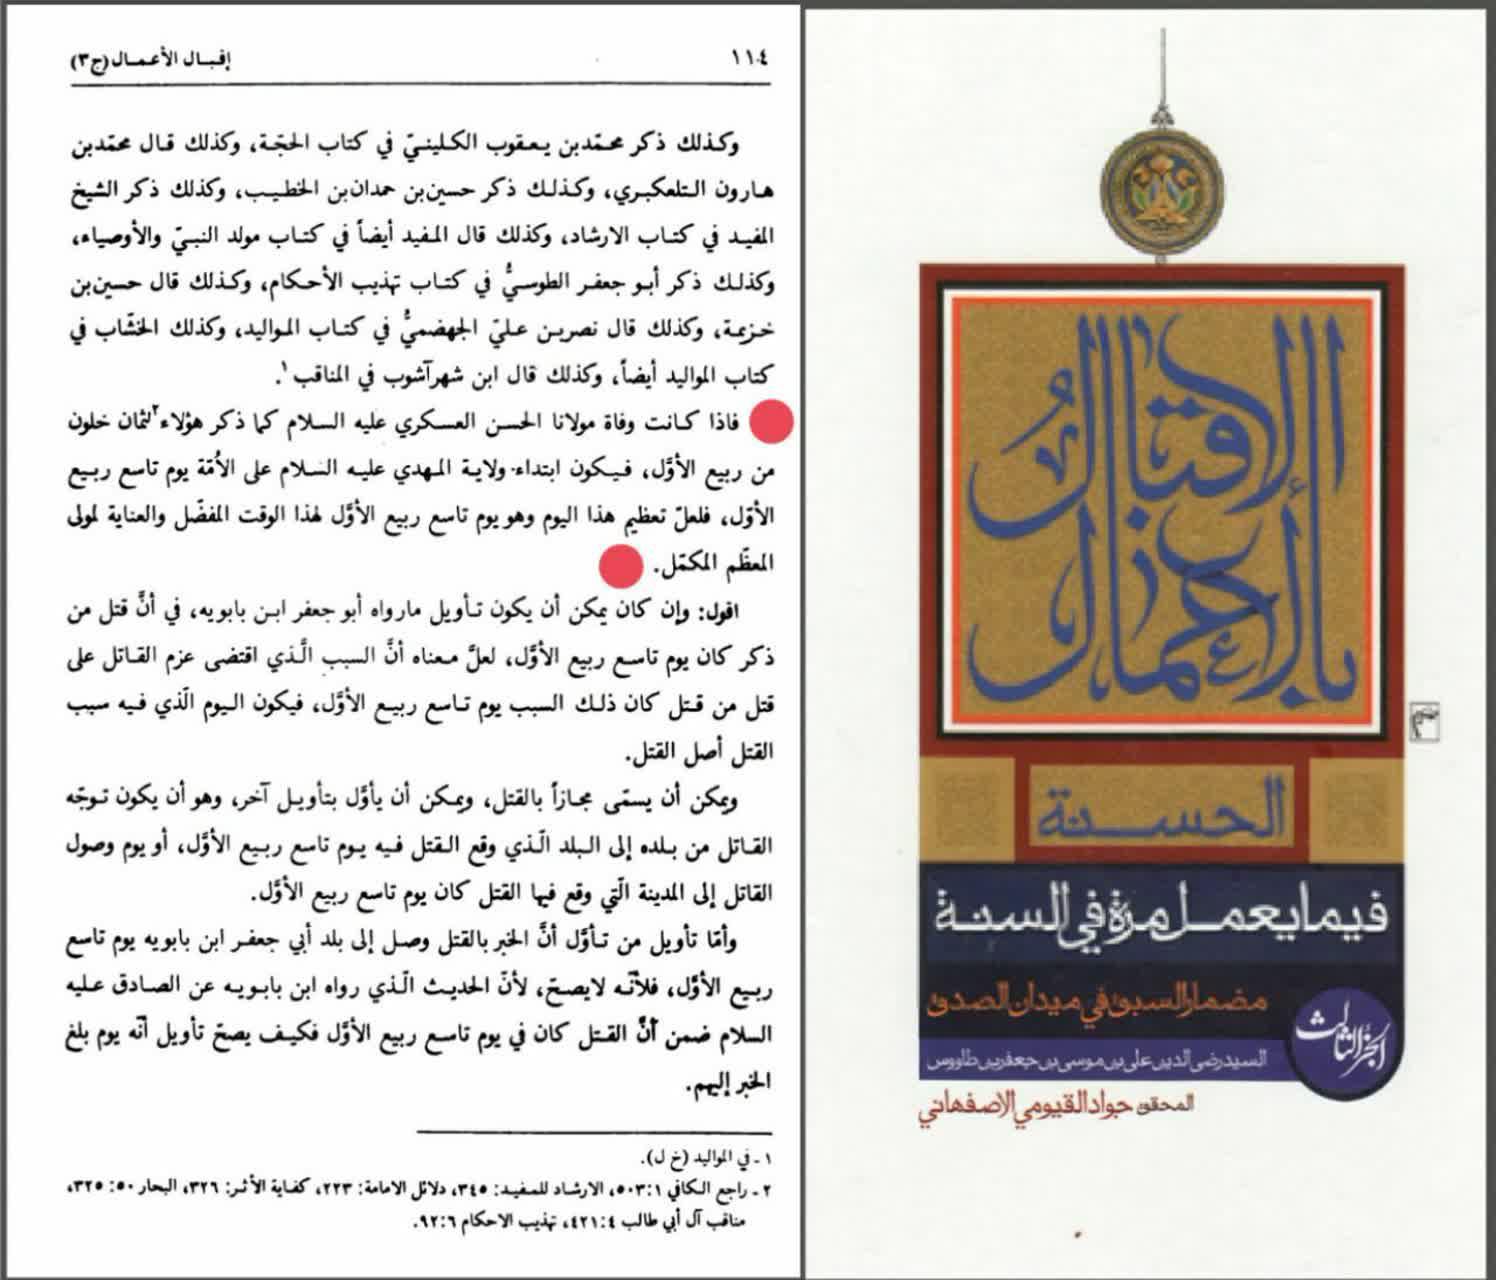 ١١٤
إقبال الأعمال (ج٣)
وكذلك ذكر محمّد بن يعقوب الكلينيّ في كتاب الحجّة، وكذلك قال محمّد بن
هارون التلعكبري، وكذلك ذكر حسين بن حمدان بن الخطيب، وكذلك ذكر الشيخ
المفيد في كتاب الارشاد، وكذلك قال المفيد أيضاً في كتاب مولد النبيّ والأوصياء،
وكذلك ذكر أبو جعفر الطوسيُّ في كتاب تهذيب الأحكام، وكذلك قال حسين بن
خزيمة، وكذلك قال نصر بن عليّ الجهضميُّ في كتاب المواليد، وكذلك الخشّاب في
كتاب المواليد أيضاً، وكذلك قال ابن شهرآشوب في المناقب ١.
فاذا كانت وفاة مولانا الحسن العسكري عليه السلام كما ذكر هؤلاء ٢ لثمان خلون
من ربيع الأوَّل، فيكون ابتداء ولاية المهدي عليه السلام على الاُمّة يوم تاسع ربيع
الأوّل، فلعلّ تعظيم هذا اليوم وهو يوم تاسع ربيع الأوَّل لهذا الوقت المفضّل والعناية لمولى
المعظّم المكمّل.
اقول: وإن كان يمكن أن يكون تأويل ما رواه أبو جعفر ابن بابويه، في أنَّ قتل من
ذكر كان يوم تاسع ربيع الأوَّل، لعلَّ معناه أنَّ السبب الَّذي اقتضى عزم القاتل على
قتل من قتل كان ذلك السبب يوم تاسع ربيع الأوَّل، فيكون اليوم الّذي فيه سبب
القتل أصل القتل.
ويمكن أن يسمّى مجازاً بالقتل، ويمكن أن يأوَّل بتأويل آخر، وهو أن يكون توجّه
القاتل من بلده إلى البلد الّذي وقع القتل فيه يوم تاسع ربيع الأوَّل، أو يوم وصول
القاتل إلى المدينة الّتي وقع فيها القتل كان يوم تاسع ربيع الأوَّل.
وأمّا تأويل من تأوَّل أنَّ الخبر بالقتل وصل إلى بلد أبي جعفر ابن بابويه يوم تاسع
ربيع الأوَّل، فلأنّه لا يصحّ، لأنّ الحديث الّذي رواه ابن بابويه عن الصادق عليه
السلام ضمن أنَّ القتل كان في يوم تاسع ربيع الأوَّل فكيف يصحّ تأويل أنّه يوم بلغ
الخبر إليهم.
١ ـ في المواليد (خ ل).
٢ ـ راجع الكافي ١: ٥٠٣، الارشاد للمفيد: ٣٤٥، دلائل الامامة: ٢٢٣، كفاية الأثر: ٣٢٦، البحار ٥٠: ٣٢٥،
مناقب آل أبي طالب ٤: ٤٢١، تهذيب الاحكام ٦: ٩٢.
الاقبال
بالأعمال
الحسنة
فيما يعمل مرة في السنة
مضمار السبق في ميدان الصدق
الجزء الثالث
السيد رضي الدين علي بن موسى بن جعفر بن طاووس
المحقق جواد القيومي الاصفهاني